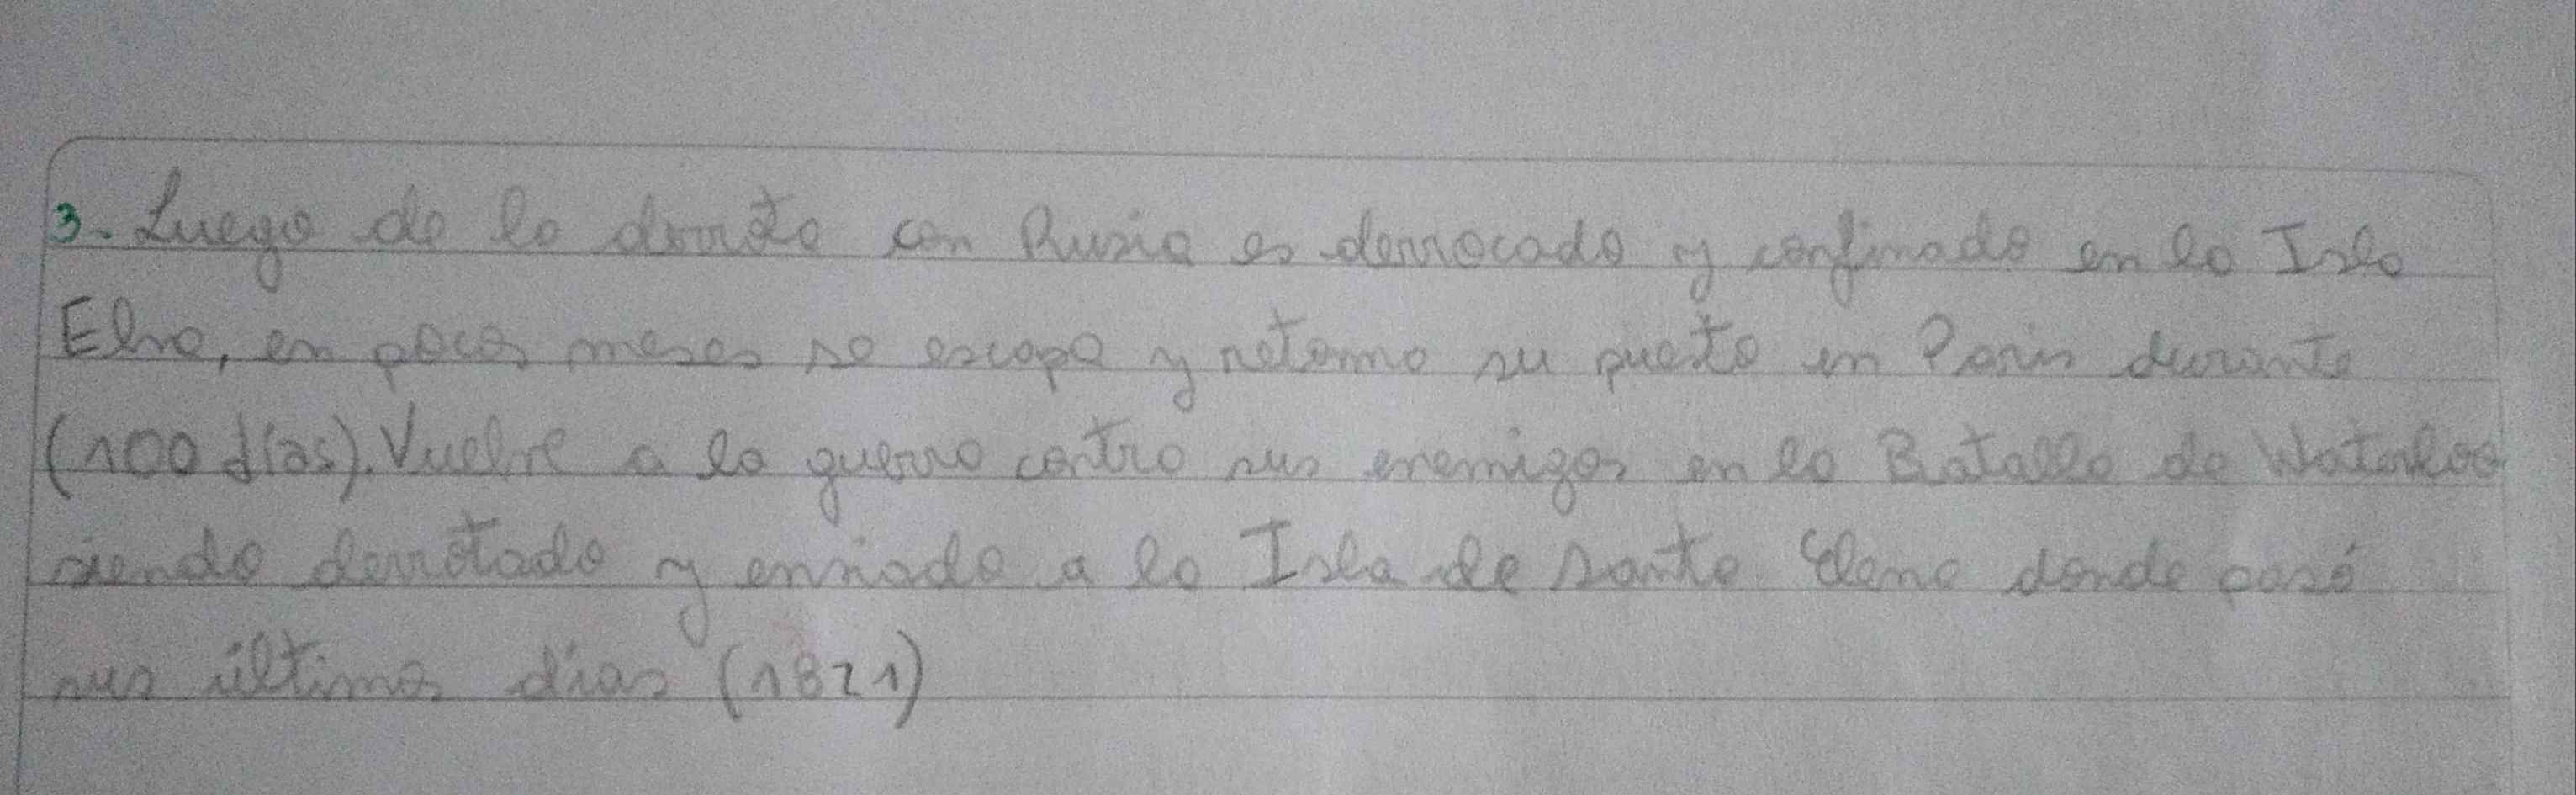 3. Luego de la derrota con Rusia es derrocado y confinado en la Isla
Elva, en pocos meses se escapa y retorna su puesto en Paris durante
(100 días). Vuelve a la guerra contra sus enemigos en la Batalla de Waterloo
siendo derrotado y enviado a la Isla de santa Elena donde pasó
sus últimos días (1821)